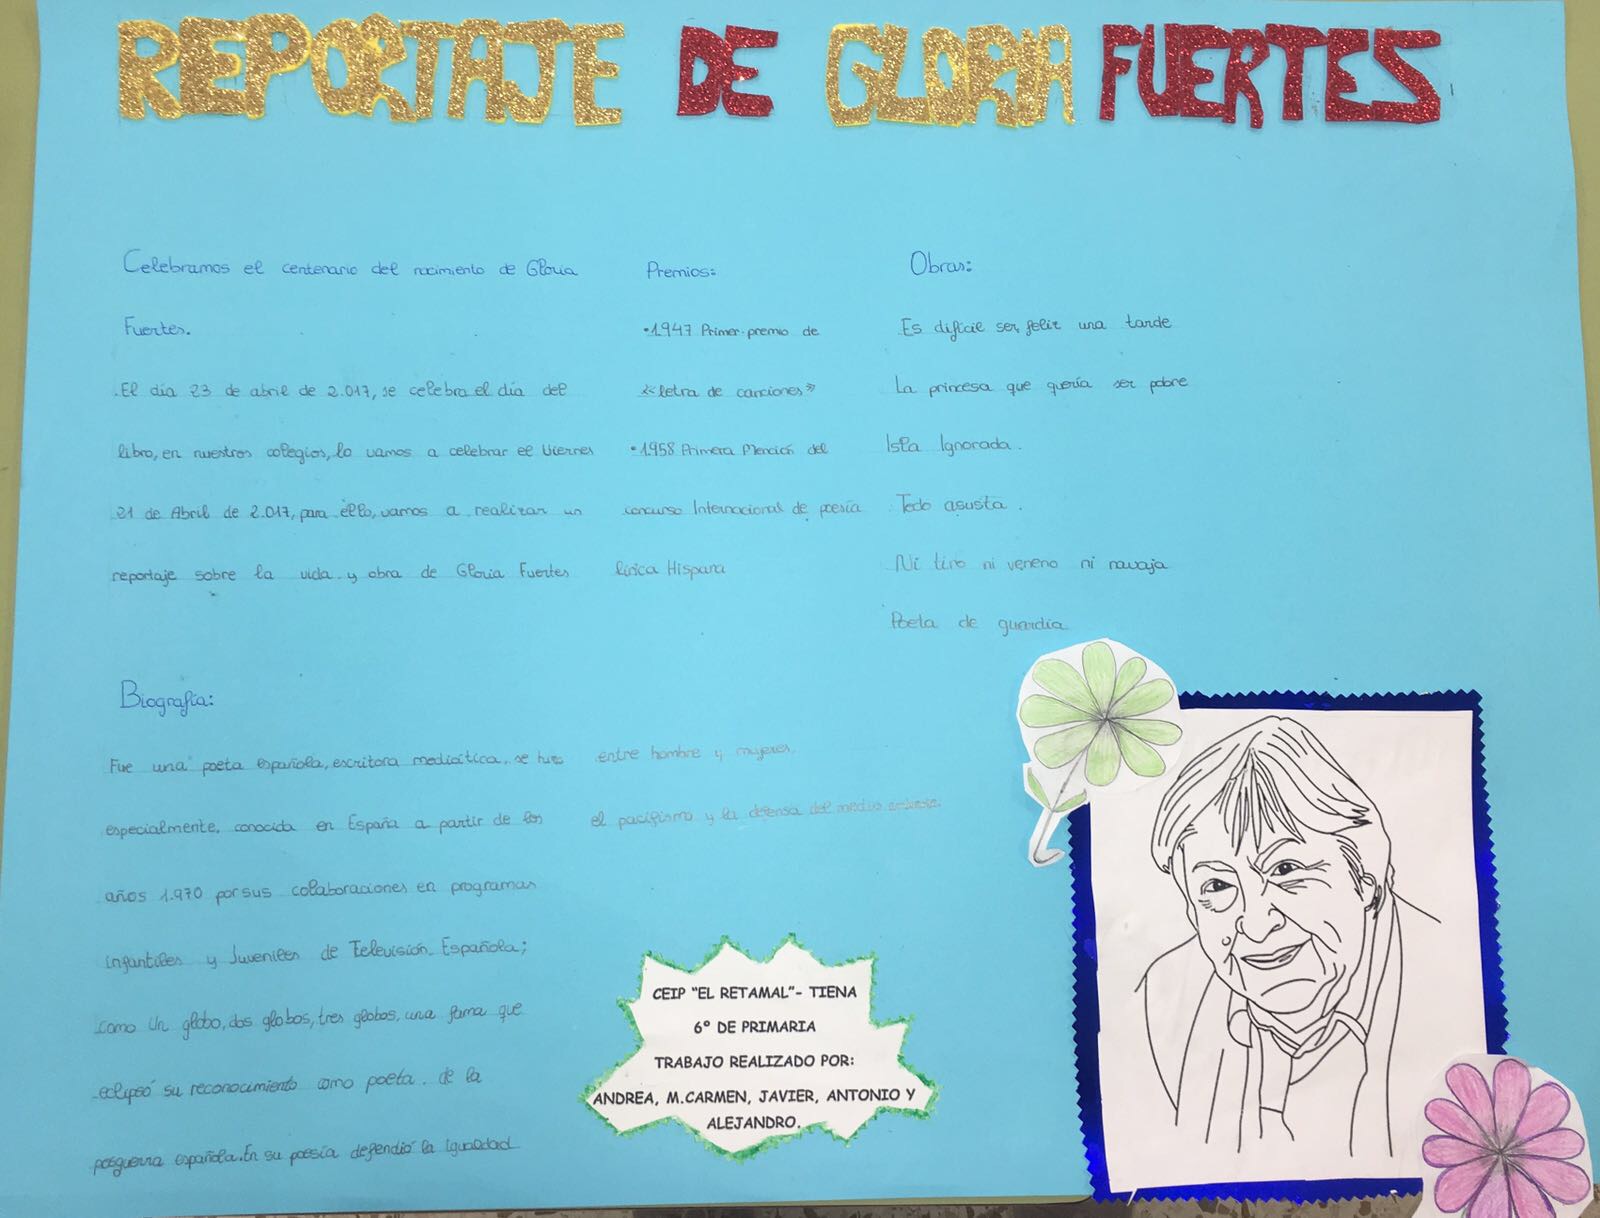 REPORTAJE DE GLORIA FUERTES
Celebramos el centenario del nacimiento de Gloria
Fuertes.
El día 23 de abril de 2.017, se celebra el día del
libro, en nuestros colegios, lo vamos a celebrar el Viernes
21 de Abril de 2.017, para ello, vamos a realizar un
reportaje sobre la vida y obra de Gloria Fuertes
Premios:
•1947 Primer premio de
«letra de canciones»
•1958 Primera Mención del
concurso Internacional de poesía
lírica Hispana
Obras:
Es dificil ser feliz una tarde
La princesa que quería ser pobre
Isla Ignorada.
Todo asusta.
Ni tiro ni veneno ni navaja
Poeta de guardia
Biografía:
Fue una poeta española, escritora mediática, se hizo
especialmente, conocida en España a partir de los
años 1.970 por sus colaboraciones en programas
infantiles y Juveniles de Televisión Española;
como Un globo, dos globos, tres globos, una fama que
eclipsó su reconocimiento como poeta de la
posguerra española. En su poesía defendió la igualdad
entre hombre y mujeres,
el pacifismo y la defensa del medio ambiente.
CEIP "EL RETAMAL"- TIENA
6º DE PRIMARIA
TRABAJO REALIZADO POR:
ANDREA, M.CARMEN, JAVIER, ANTONIO Y
ALEJANDRO.